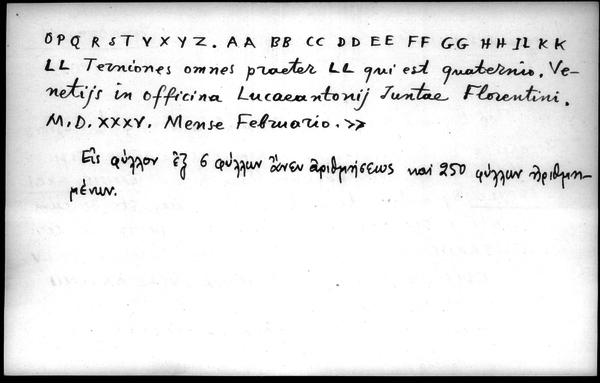 O P Q R S T V X Y Z . AA BB CC DD EE FF GG HH II KK
LL Terniones omnes praeter LL qui est quaternio. Ve-
netijs in officina Lucaeantonij Juntae Florentini.
M.D.XXXV. Mense Februario. >>
Εἰς φύλλον ἐξ 6 φύλλων ἄνευ ἀριθμήσεως καὶ 250 φύλλων ἠριθμη-
μένων.